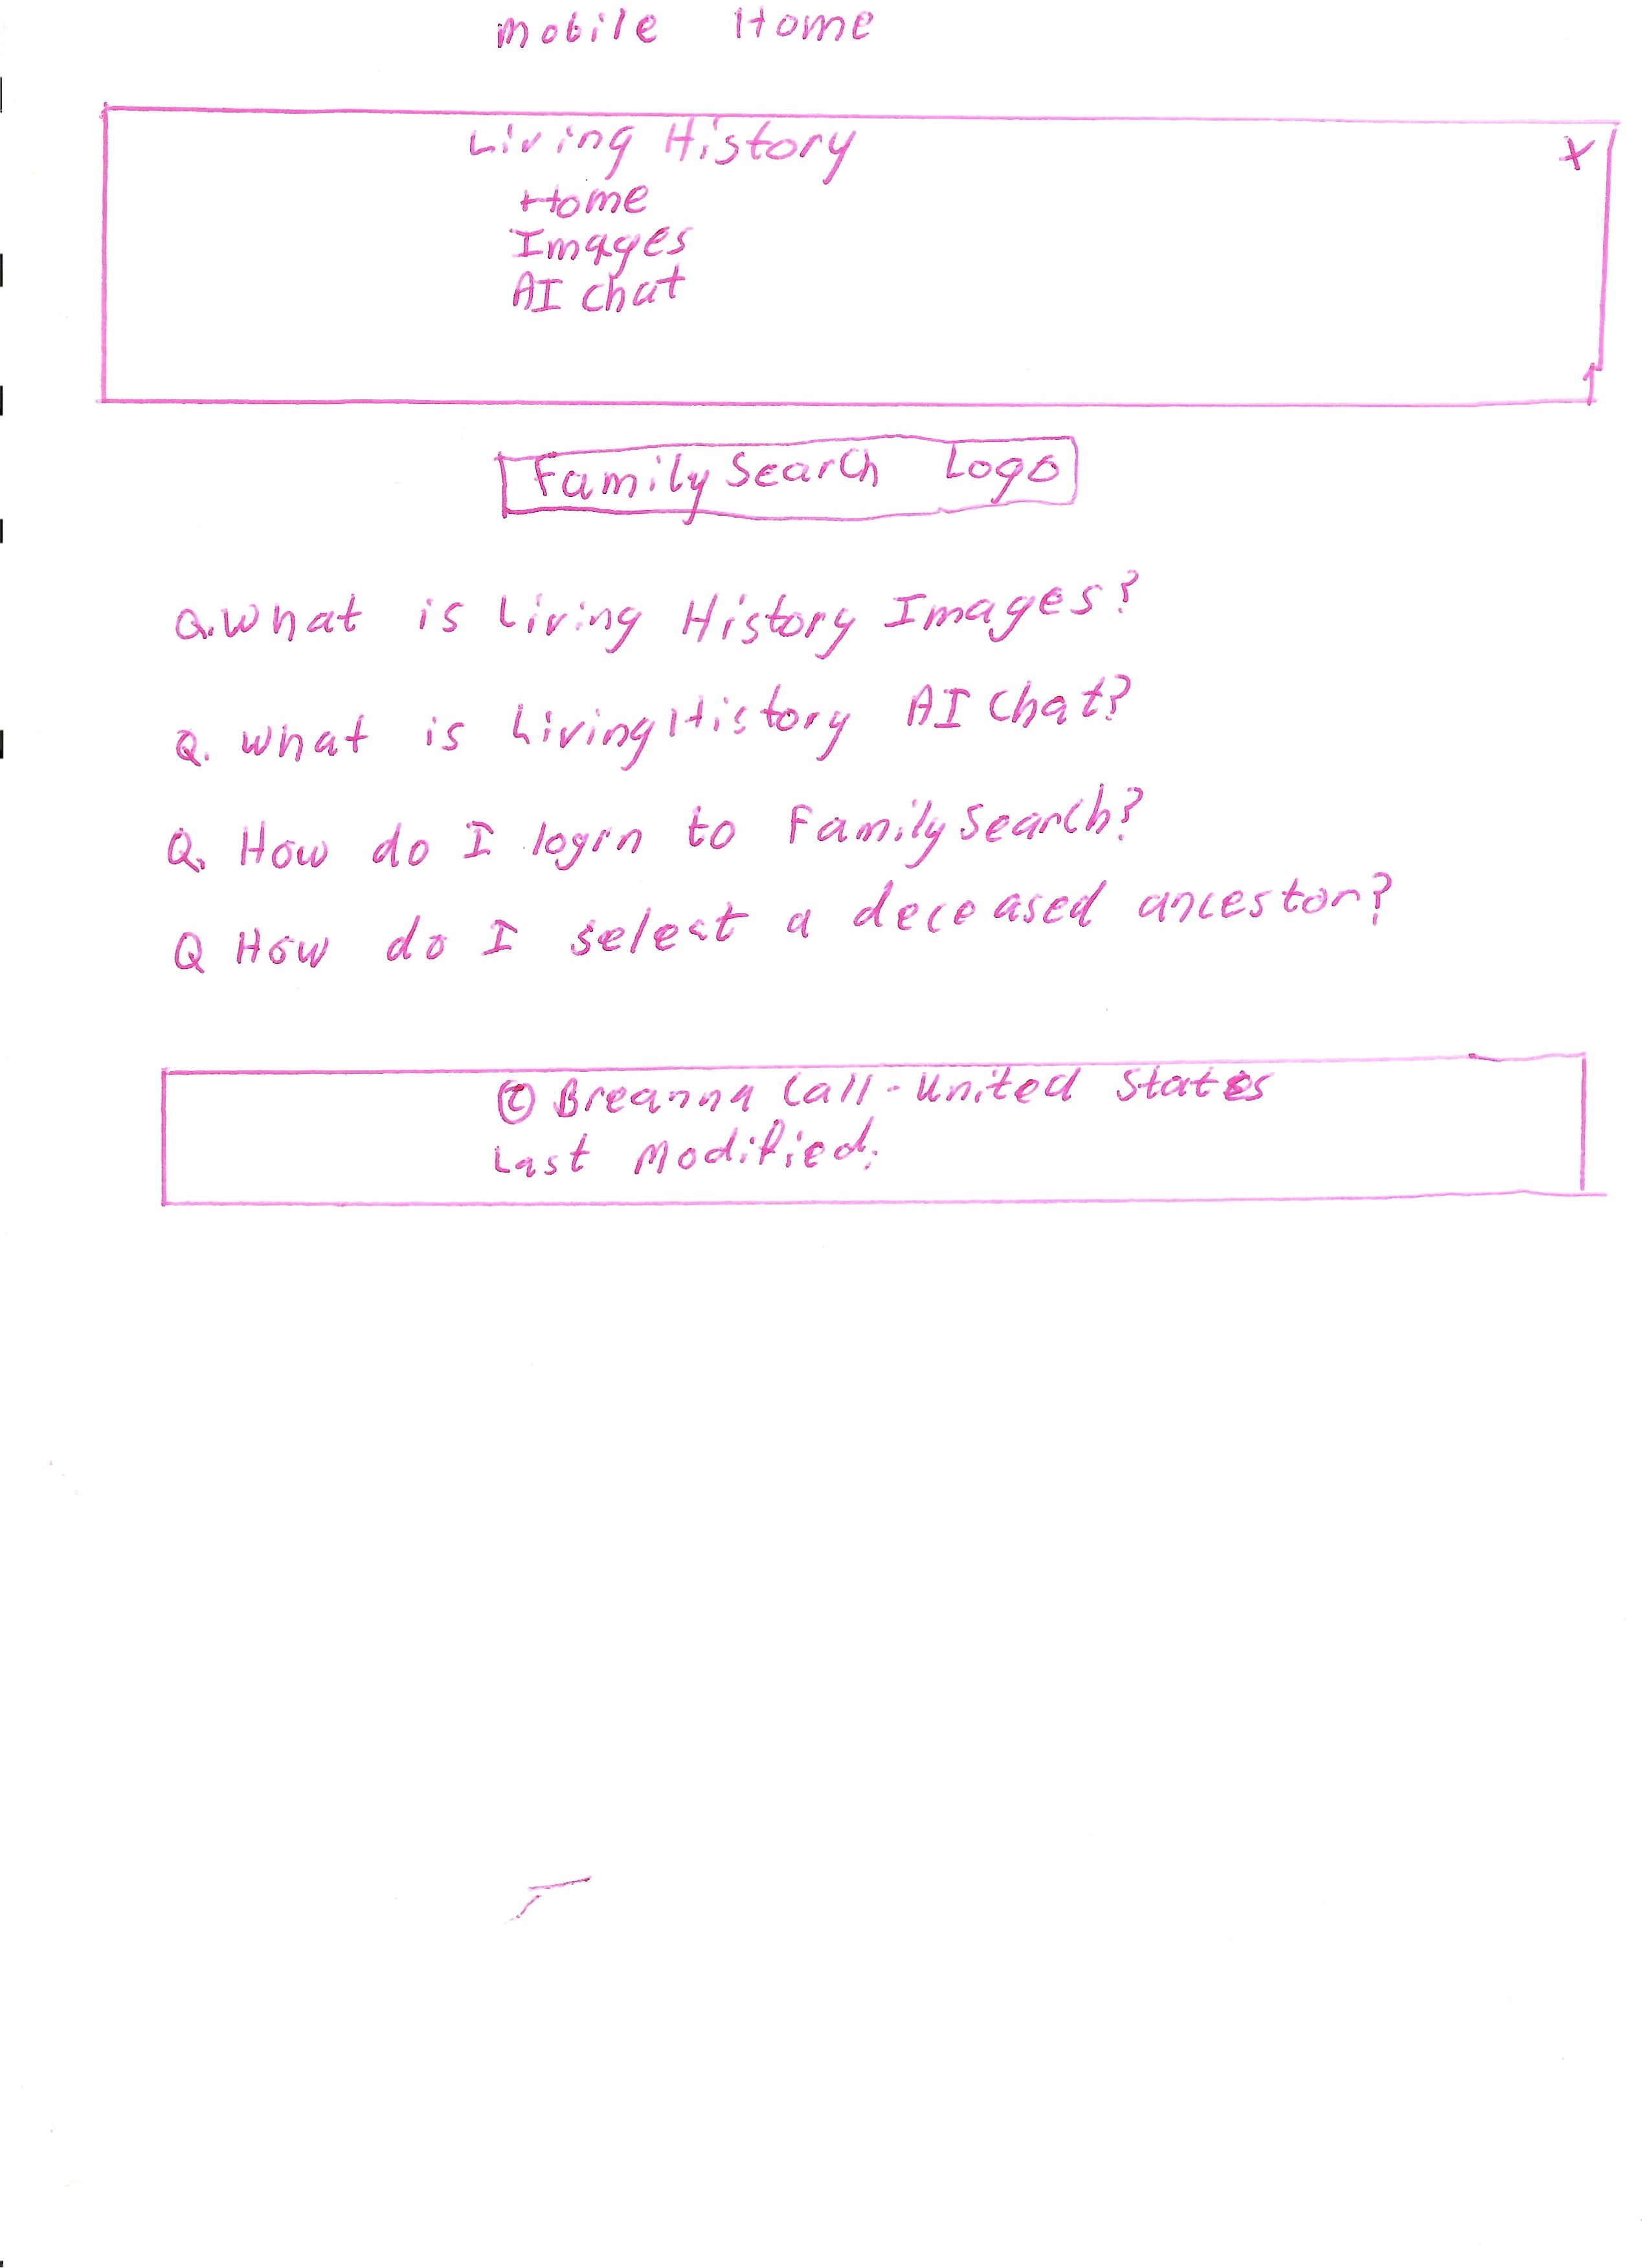 Mobile Home
Living History X
Home
Images
AI chat
FamilySearch Logo
Q. What is Living History Images?
Q. What is Living History AI Chat?
Q. How do I login to FamilySearch?
Q How do I select a deceased ancestor?
© Breanna Call - United States
Last Modified: